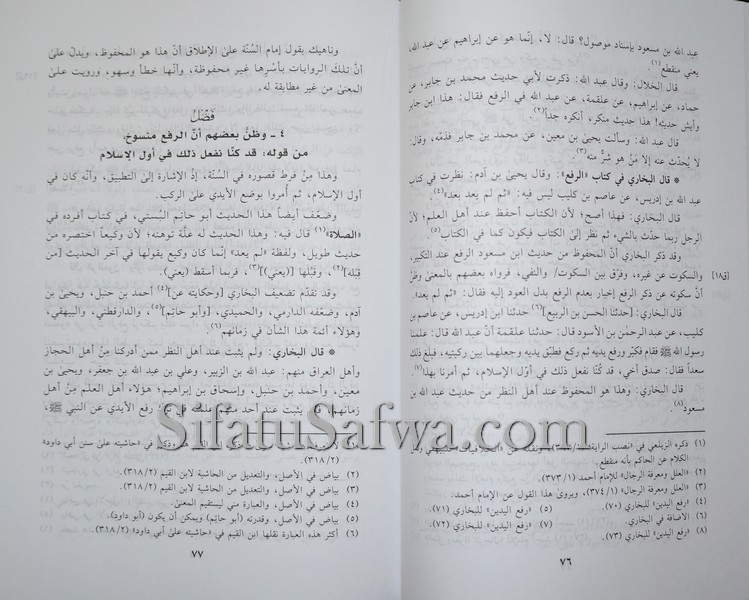 عبد الله بن مسعود بإسناد موصول؟ قال: لا، إنّما هو عن إبراهيم عن عبد الله،
يعني منقطع(١).
قال الخلال: وقال عبد الله: ذكرت لأبي حديث محمد بن جابر، عن
حماد، عن إبراهيم، عن علقمة، عن عبد الله في الرفع فقال: هذا ابن جابر
وأيش حديثه! هذا حديث منكر، أنكره جداً(٢).
قال عبد الله: وسألت يحيىٰ بن معين، عن محمد بن جابر فذمّه، وقال:
لا يُحدّث عنه إلا مَنْ هو شرٌّ منه(٣).
* قال البخاري في كتاب «الرفع»: وقال يحيىٰ بن آدم: نظرت في كتاب
عبد الله بن إدريس، عن عاصم بن كليب ليس فيه: «ثم لم يعد بعد»(٤).
قال البخاري: فهذا أصح؛ لأن الكتاب أحفظ عند أهل العلم؛ لأنّ
الرجل ربما حدّث بالشيء ثم نظر إلى الكتاب فيكون كما في الكتاب(٥).
وقد ذكر البخاري أنّ المحفوظ من حديث ابن مسعود الرفع عند التكبير،
[ق١٨] والسكوت عن غيره، وفرْق بين السكوت/ والنفي، فرواه بعضهم بالمعنىٰ وظنّ
أنّ سكوته عن ذكر الرفع إخبار بعدم الرفع بدل العود إليه فقال: «ثم لم يعد».
قال البخاري: [حدثنا الحسن بن الربيع](٦) حدثنا ابن إدريس، عن عاصم بن
كليب، عن عبد الرحمٰن بن الأسود قال: حدثنا علقمة أنّ عبد الله قال: علمنا
رسول الله ﷺ فقام فكبّر ورفع يديه ثم ركع فطبّق يديه وجعلهما بين ركبتيه، فبلغ ذلك
سعداً فقال: صدق أخي، قد كُنّا نفعل ذلك في أوّل الإسلام، ثم أُمرنا بهذا(٧).
قال البخاري: وهذا هو المحفوظ عند أهل النظر من حديث عبد الله بن
مسعود(٨).
(١) ذكره الزيلعي في «نصب الراية»
الكلام عن الحاكم بأنه منقطع.
(٢) «العلل ومعرفة الرجال» للإمام أحمد (٣٧٣/١).
(٣) «العلل ومعرفة الرجال» (٣٧٤/١)، ويروىٰ هذا القول عن الإمام أحمد.
(٤) «رفع اليدين» للبخاري (٧٠). (٥) «رفع اليدين» للبخاري (٧١).
(٦) الاضافة في البخاري. (٧) «رفع اليدين» للبخاري (٧٢).
(٨) «رفع اليدين» للبخاري (٧٣).
٧٦
وناهيك بقول إمام السُنّة علىٰ الإطلاق أنّ هذا هو المحفوظ، ويدلّ علىٰ
أنّ تلك الروايات بأسْرِها غير محفوظة، وأنّها خطأ وسهو، ورويت علىٰ
المعنىٰ من غير مطابقة له.
فَصْلٌ
٤ ـ وظنّ بعضهم أنّ الرفع منسوخ،
من قوله: قد كنّا نفعل ذلك في أول الإسلام
وهذا مِنْ فرط قصوره في السُنّة، إذْ الإشارة إلى التطبيق، وأنّه كان في
أول الإسلام، ثم أُمروا بوضع الأيدي علىٰ الركب.
وضعّف أيضاً هذا الحديث أبو حاتِم البُستي، في كتاب أفرده في
«الصلاة»(١) قال فيه: وهذا الحديث له علّة توهنه؛ لأن وكيعاً اختصره من
حديث طويل، ولفظة «لم يعد» إنّما كان وكيع يقولها في آخر الحديث [من
قِبَله](٢)، وقَبْلها [(يعني)](٣)، فربما أسقط (يعني).
وقد تقدّم تضعيف البخاري [وحكايته عن](٤) أحمد بن حنبل، ويحيىٰ بن
آدم، وضعّفه الدارمي، والحميدي، [وأبو حاتم](٥)، والدارقطني، والبيهقي،
وهؤلاء أئمة هذا الشأن في زمانهم(٦).
* قال البخاري: ولم يثبت عند أهل النظر ممن أدركنا مِنْ أهل الحجاز
وأهل العراق منهم: عبد الله بن الزبير، وعلي بن عبد الله بن جعفر، ويحيىٰ بن
معين، وأحمد بن حنبل، وإسحاق بن إبراهيم؛ هؤلاء أهل العلم مِنْ أهل
زمانهم، فلم يثبت عند أحد منهم علمته في ترك رفع الأيدي عن النبي ﷺ،
«حاشيته علىٰ سنن أبي داود»
(٣١٨/٢).
(٢) بياض في الأصل، والتعديل من الحاشية لابن القيم (٣١٨/٢).
(٣) بياض في الأصل، والتعديل من الحاشية لابن القيم (٣١٨/٢).
(٤) بياض في الأصل، والعبارة مني ليستقيم المعنىٰ.
(٥) بياض في الأصل، وقدرته (أبو حاتم) ويمكن أن يكون (أبو داود).
(٦) أكثر هذه العبارة نقلها ابن القيم في «حاشيته علىٰ أبي داود» (٣١٨/٢).
٧٧
SifatuSafwa.com